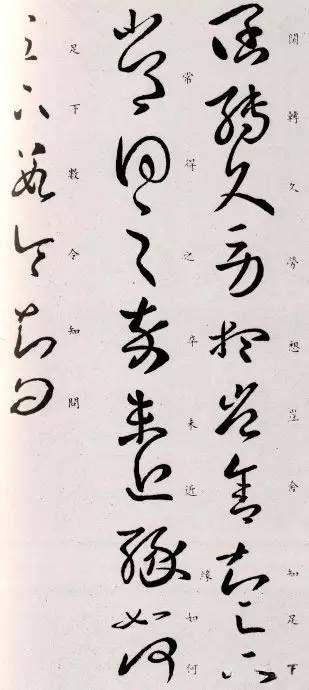 闊轉久勞想豈舍知足下
常得之卒未近緣如何
足下數令知問